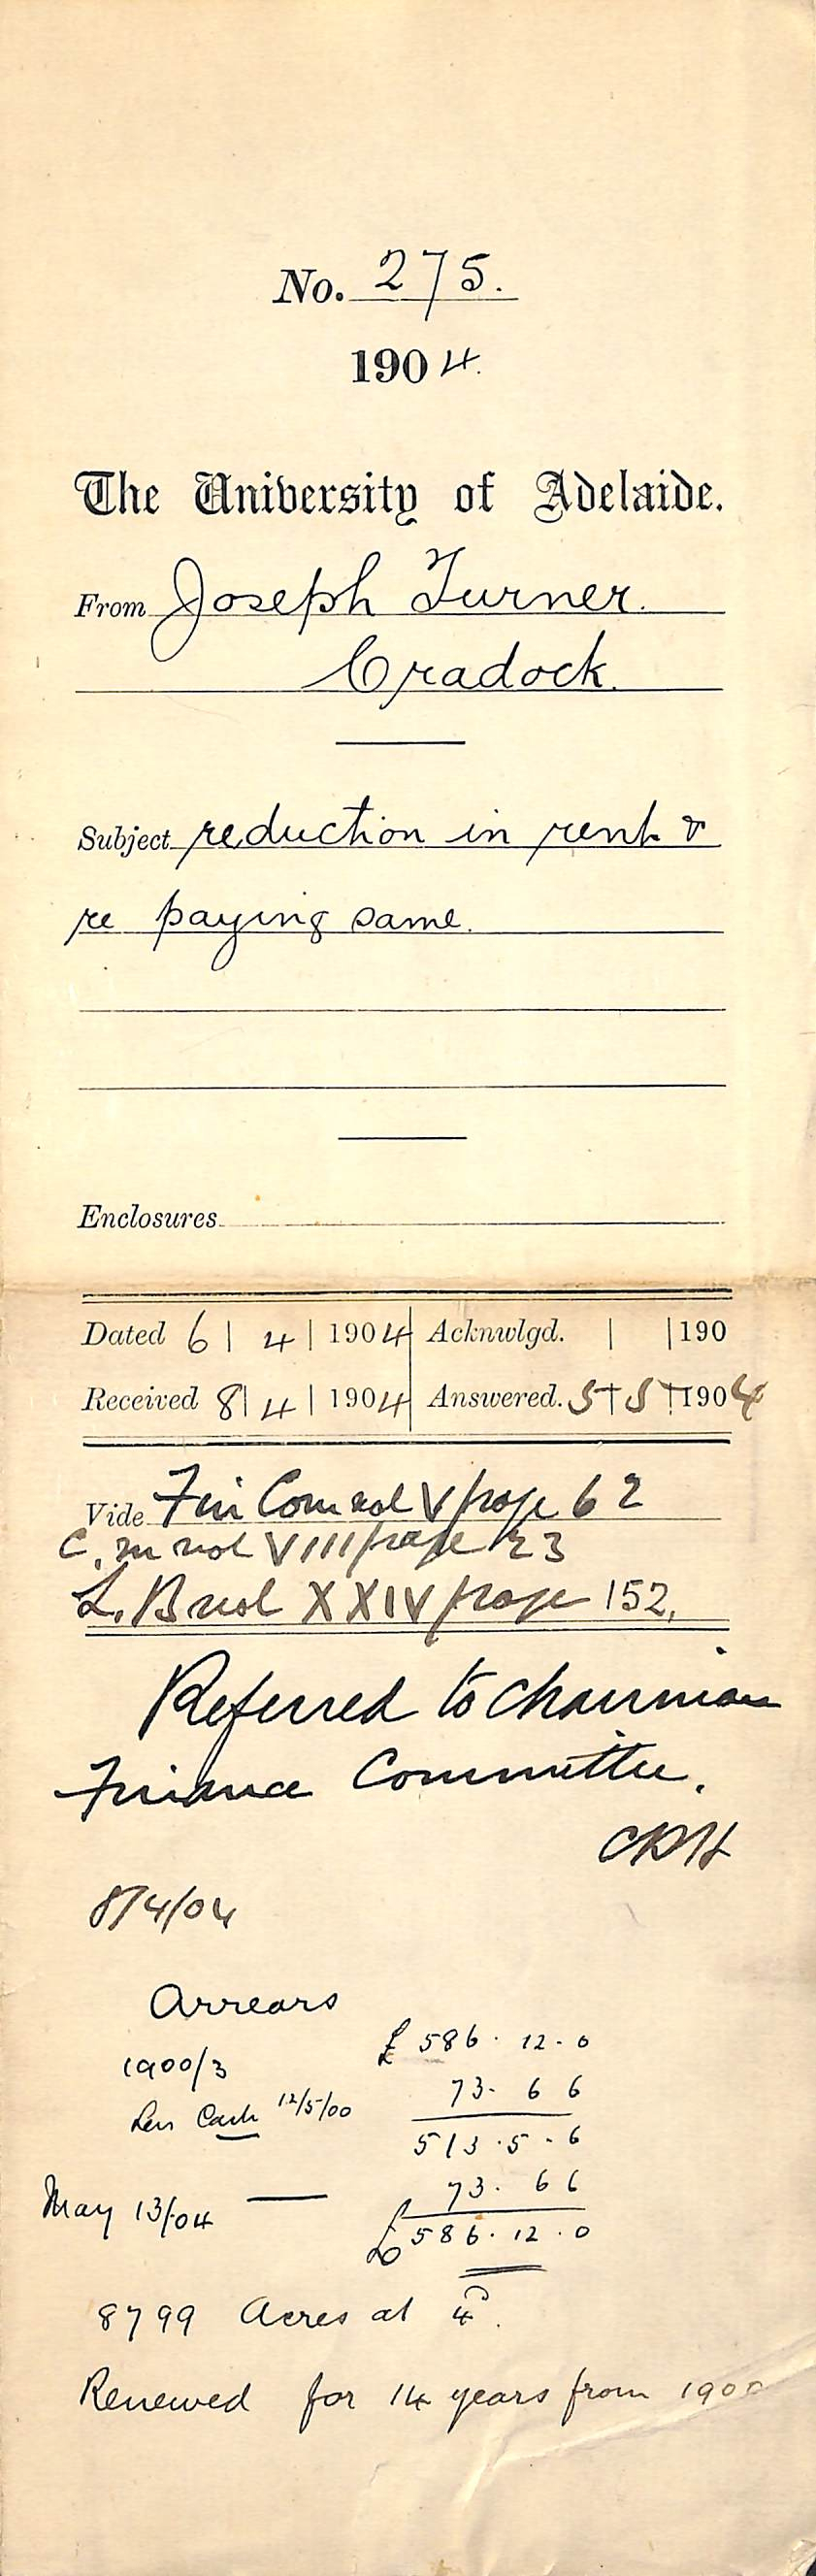 No. 275.
1904.
The University of Adelaide.
From Joseph Turner.
Cradock.
Subject reduction in rent &
re paying same.
Enclosures
Dated 6 | 4 | 1904 Acknwlgd. | | 190
Received 8 | 4 | 1904 Answered. 5 | 5 | 1904
Vide Fin Com vol V page 62
C. M vol VIII page 23
L. B vol XXIV page 152.
Referred to Chairman
Finance Committee.
CRH
8/4/04
Arrears
1900/3 £ 586. 12. 0
Less Cash 12/5/00 73. 6 6
513. 5. 6
May 13/04 — 73. 6 6
£ 586. 12. 0
8799 Acres at 4
Renewed for 14 years from 1900